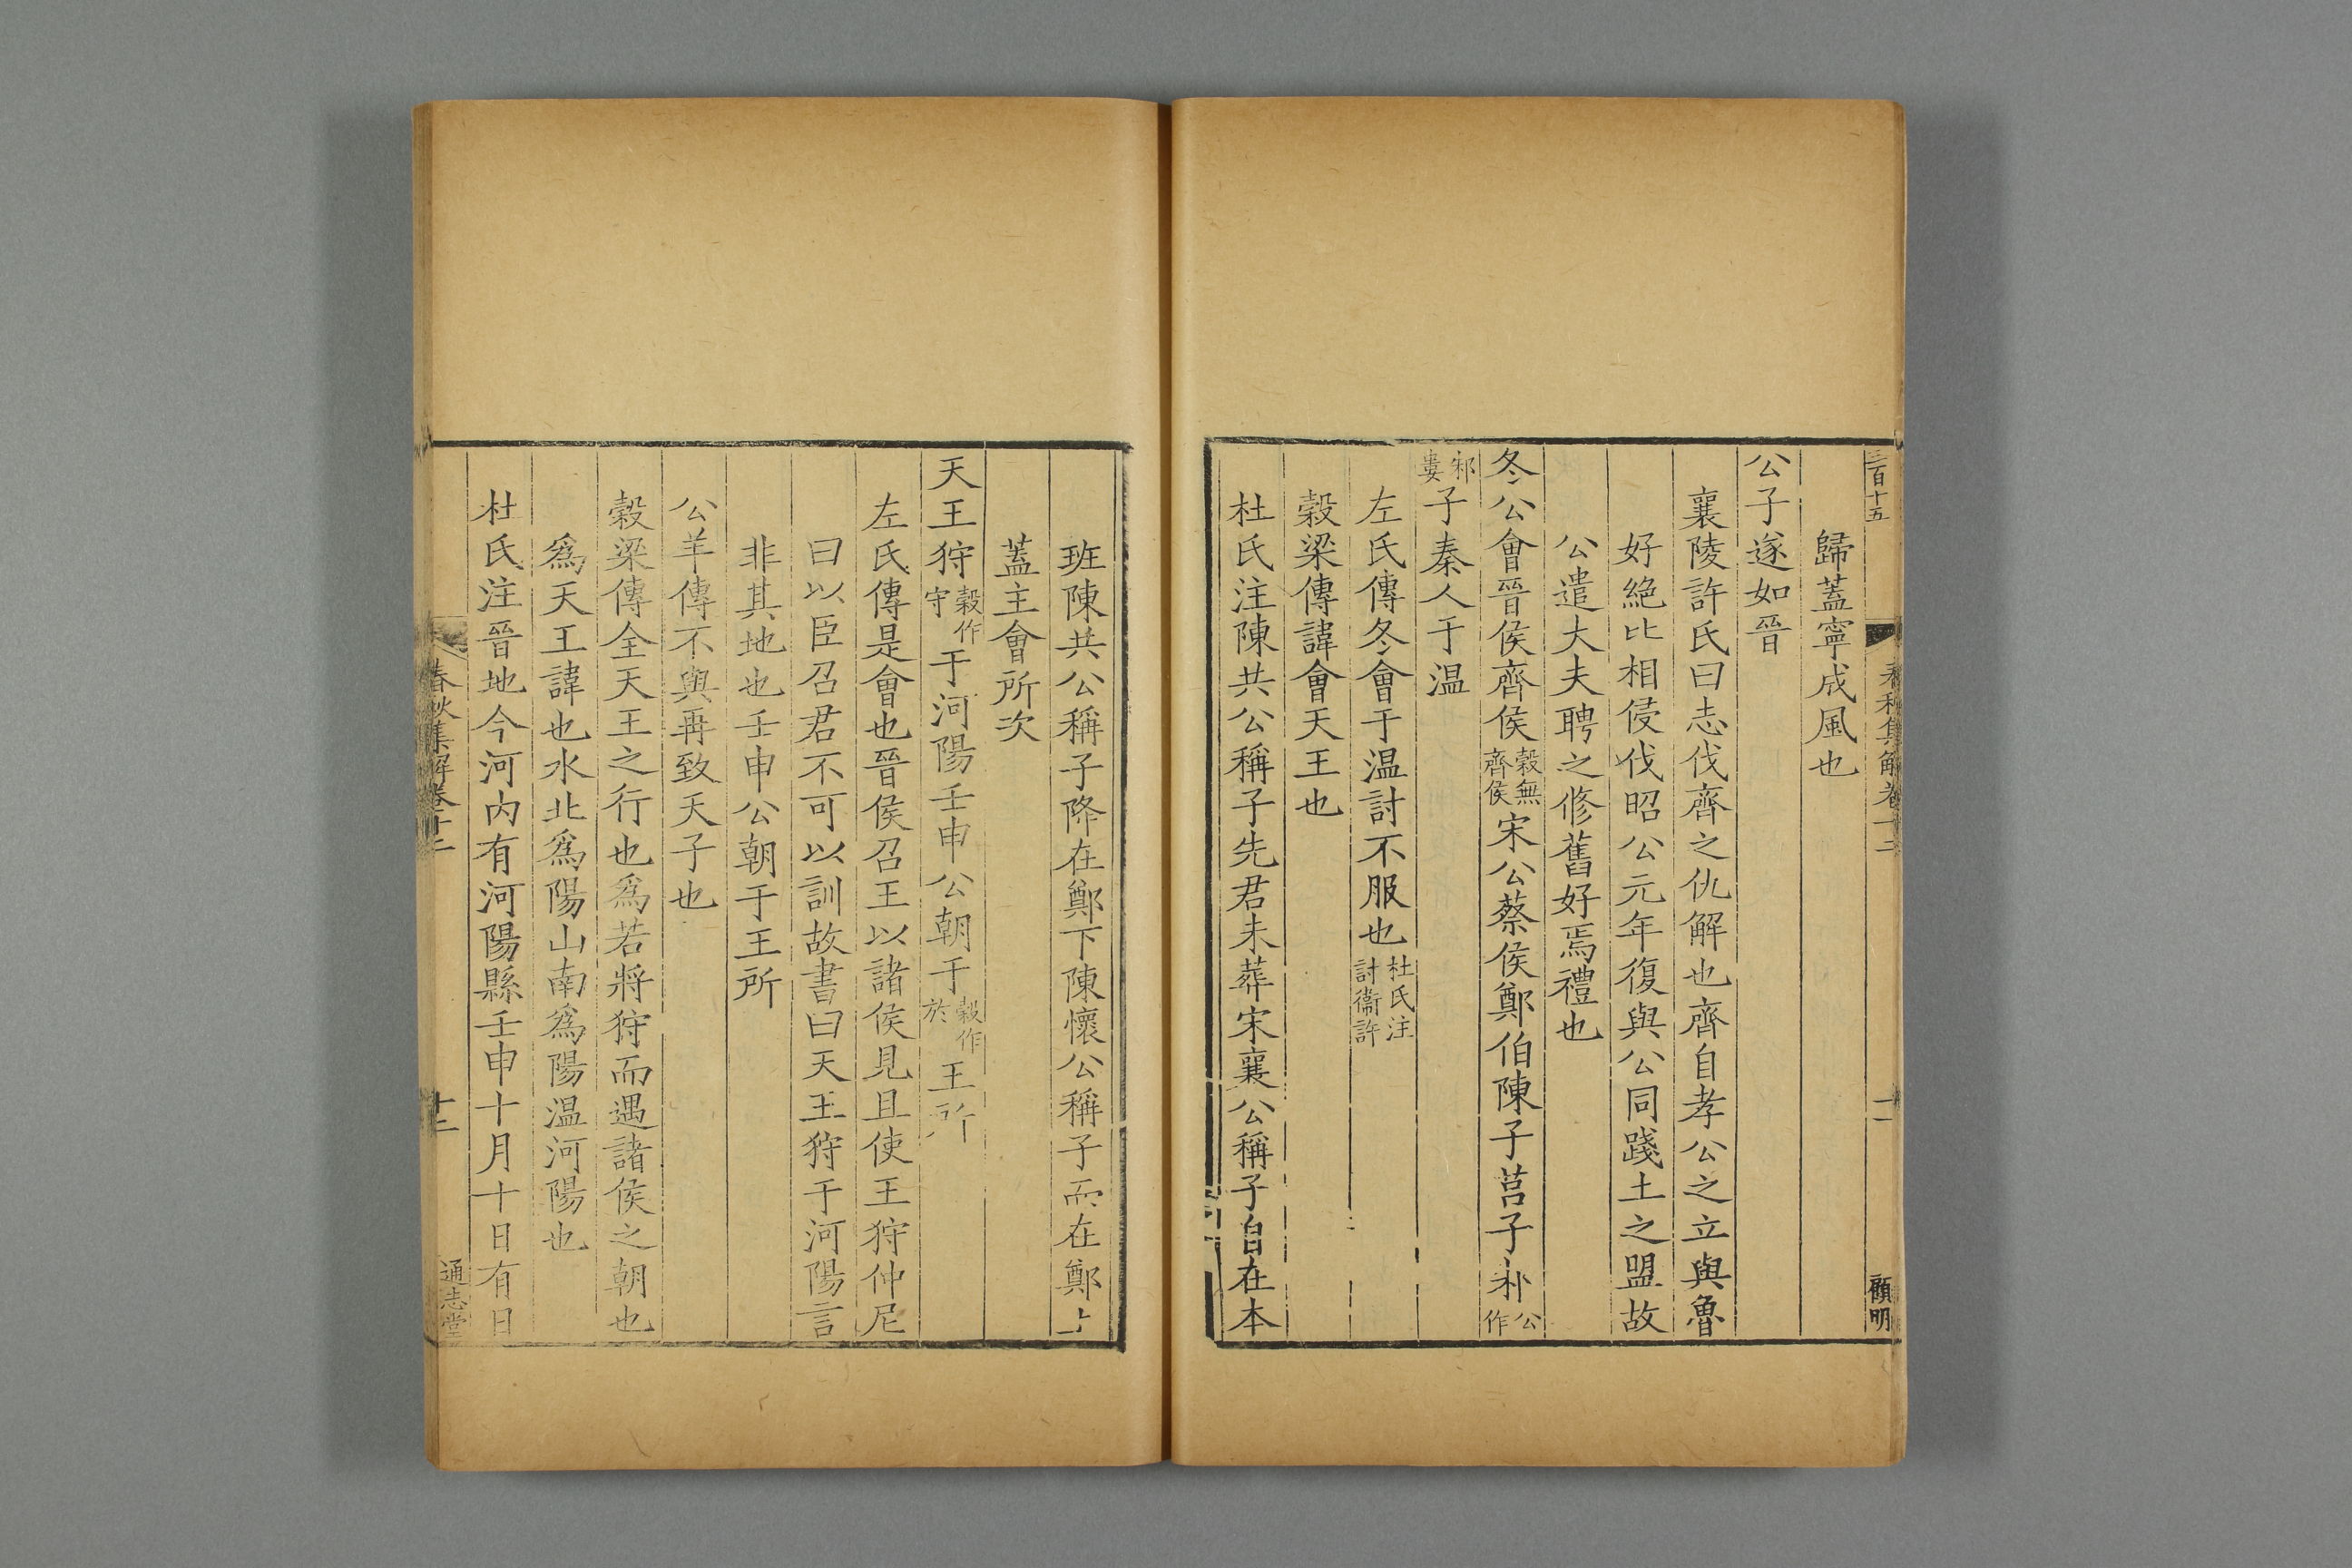 三百十五
春秋集解卷十二
十一
顧明
歸蓋寧成風也
公子遂如晉
襄陵許氏曰志伐齊之仇解也齊自孝公之立與魯
好絕比相侵伐昭公元年復與公同踐土之盟故
公遣大夫聘之修舊好焉禮也
冬公會晉侯齊侯穀無齊侯宋公蔡侯鄭伯陳子莒子邾公作
邾婁子秦人于温
左氏傳冬會于温討不服也杜氏注討衞許
穀梁傳諱會天王也
杜氏注陳共公稱子先君未葬宋襄公稱子自在本
班陳共公稱子降在鄭下陳懷公稱子而在鄭上
蓋主會所次
天王狩穀作守于河陽壬申公朝于穀作於王所
左氏傳是會也晉侯召王以諸侯見且使王狩仲尼
曰以臣召君不可以訓故書曰天王狩于河陽言
非其地也壬申公朝于王所
公羊傳不與再致天子也
穀梁傳全天王之行也爲若將狩而遇諸侯之朝也
爲天王諱也水北爲陽山南爲陽温河陽也
杜氏注晉地今河内有河陽縣壬申十月十日有日
春秋集解卷十二
十二
通志堂